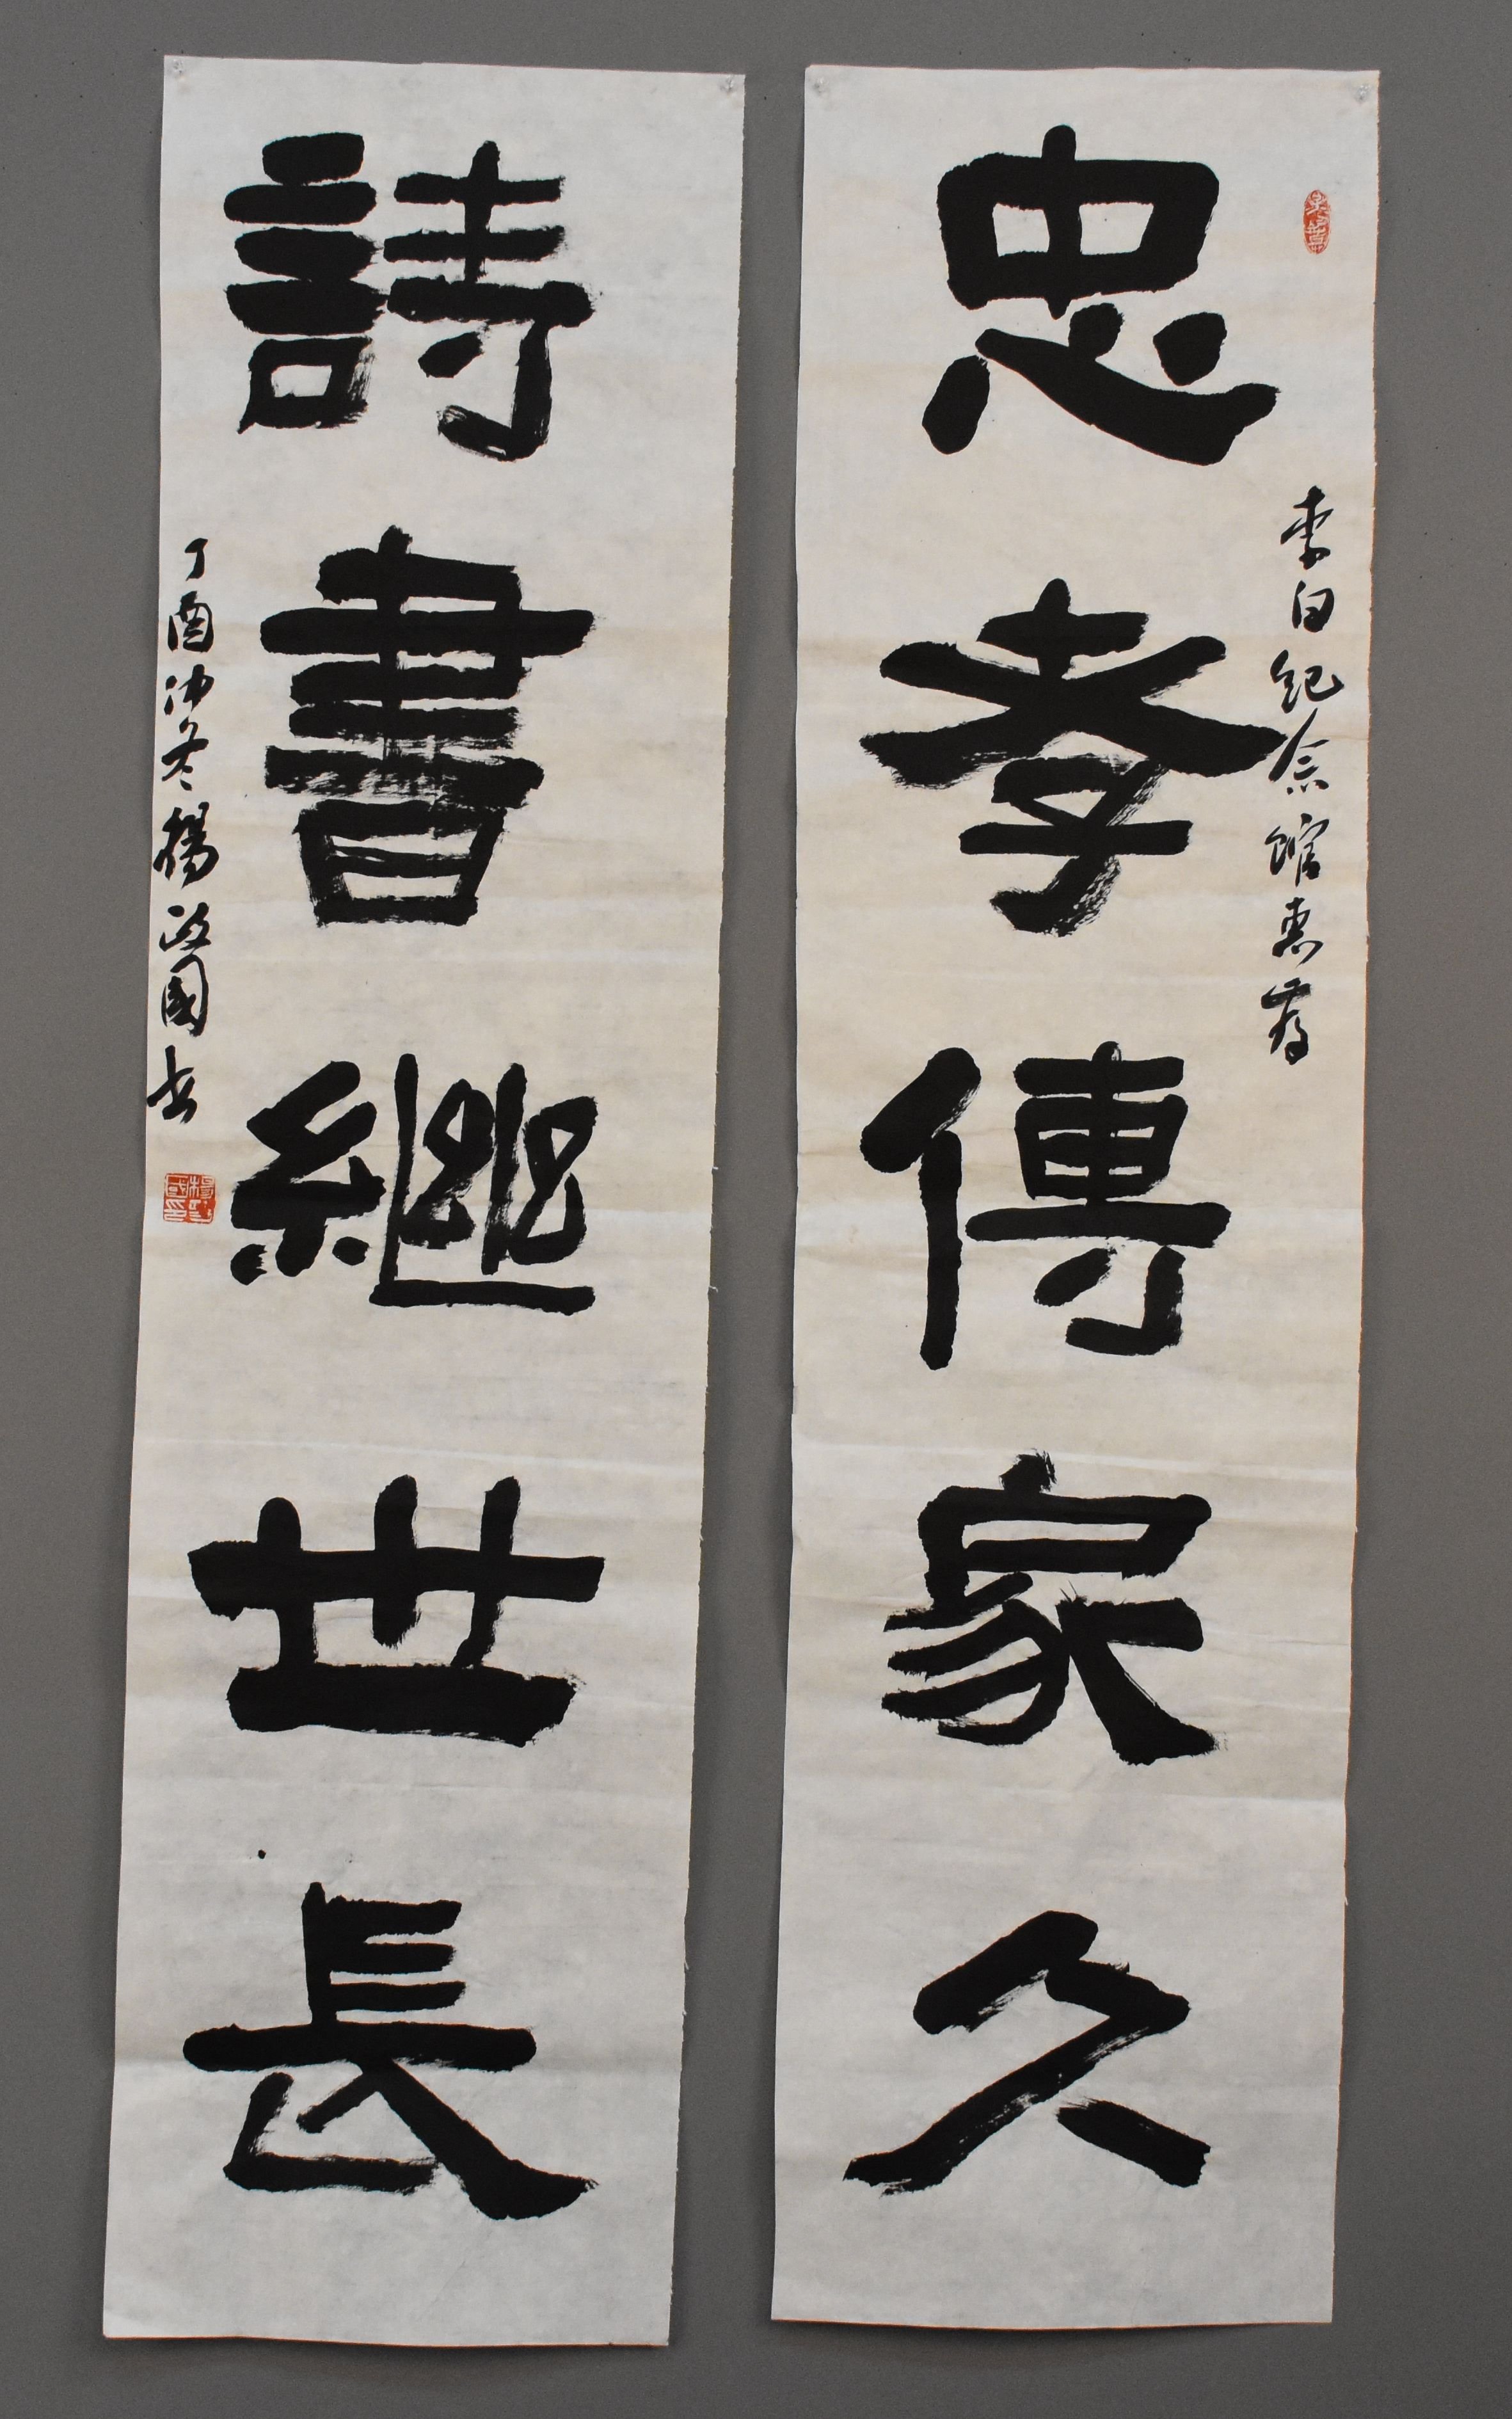 忠孝傳家久
李白纪念馆惠存
詩書繼世長
丁酉仲冬楊政國书